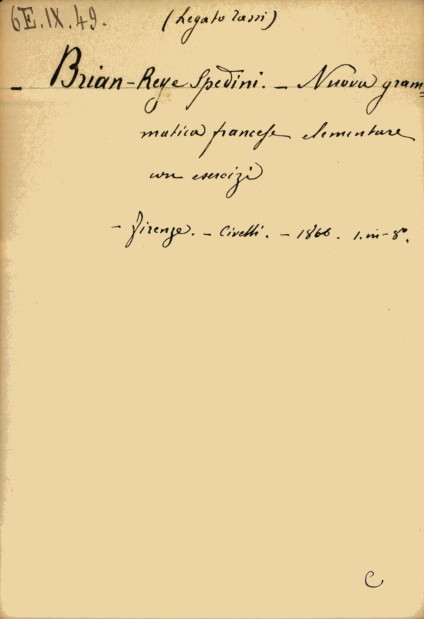 6E.IX.49. (Legato Tassi)
— Brian-Reye Spedini. — Nuova gram=
matica francese elementare
con esercizi
— Firenze. — Civelli. — 1866. 1. in-8°.
C